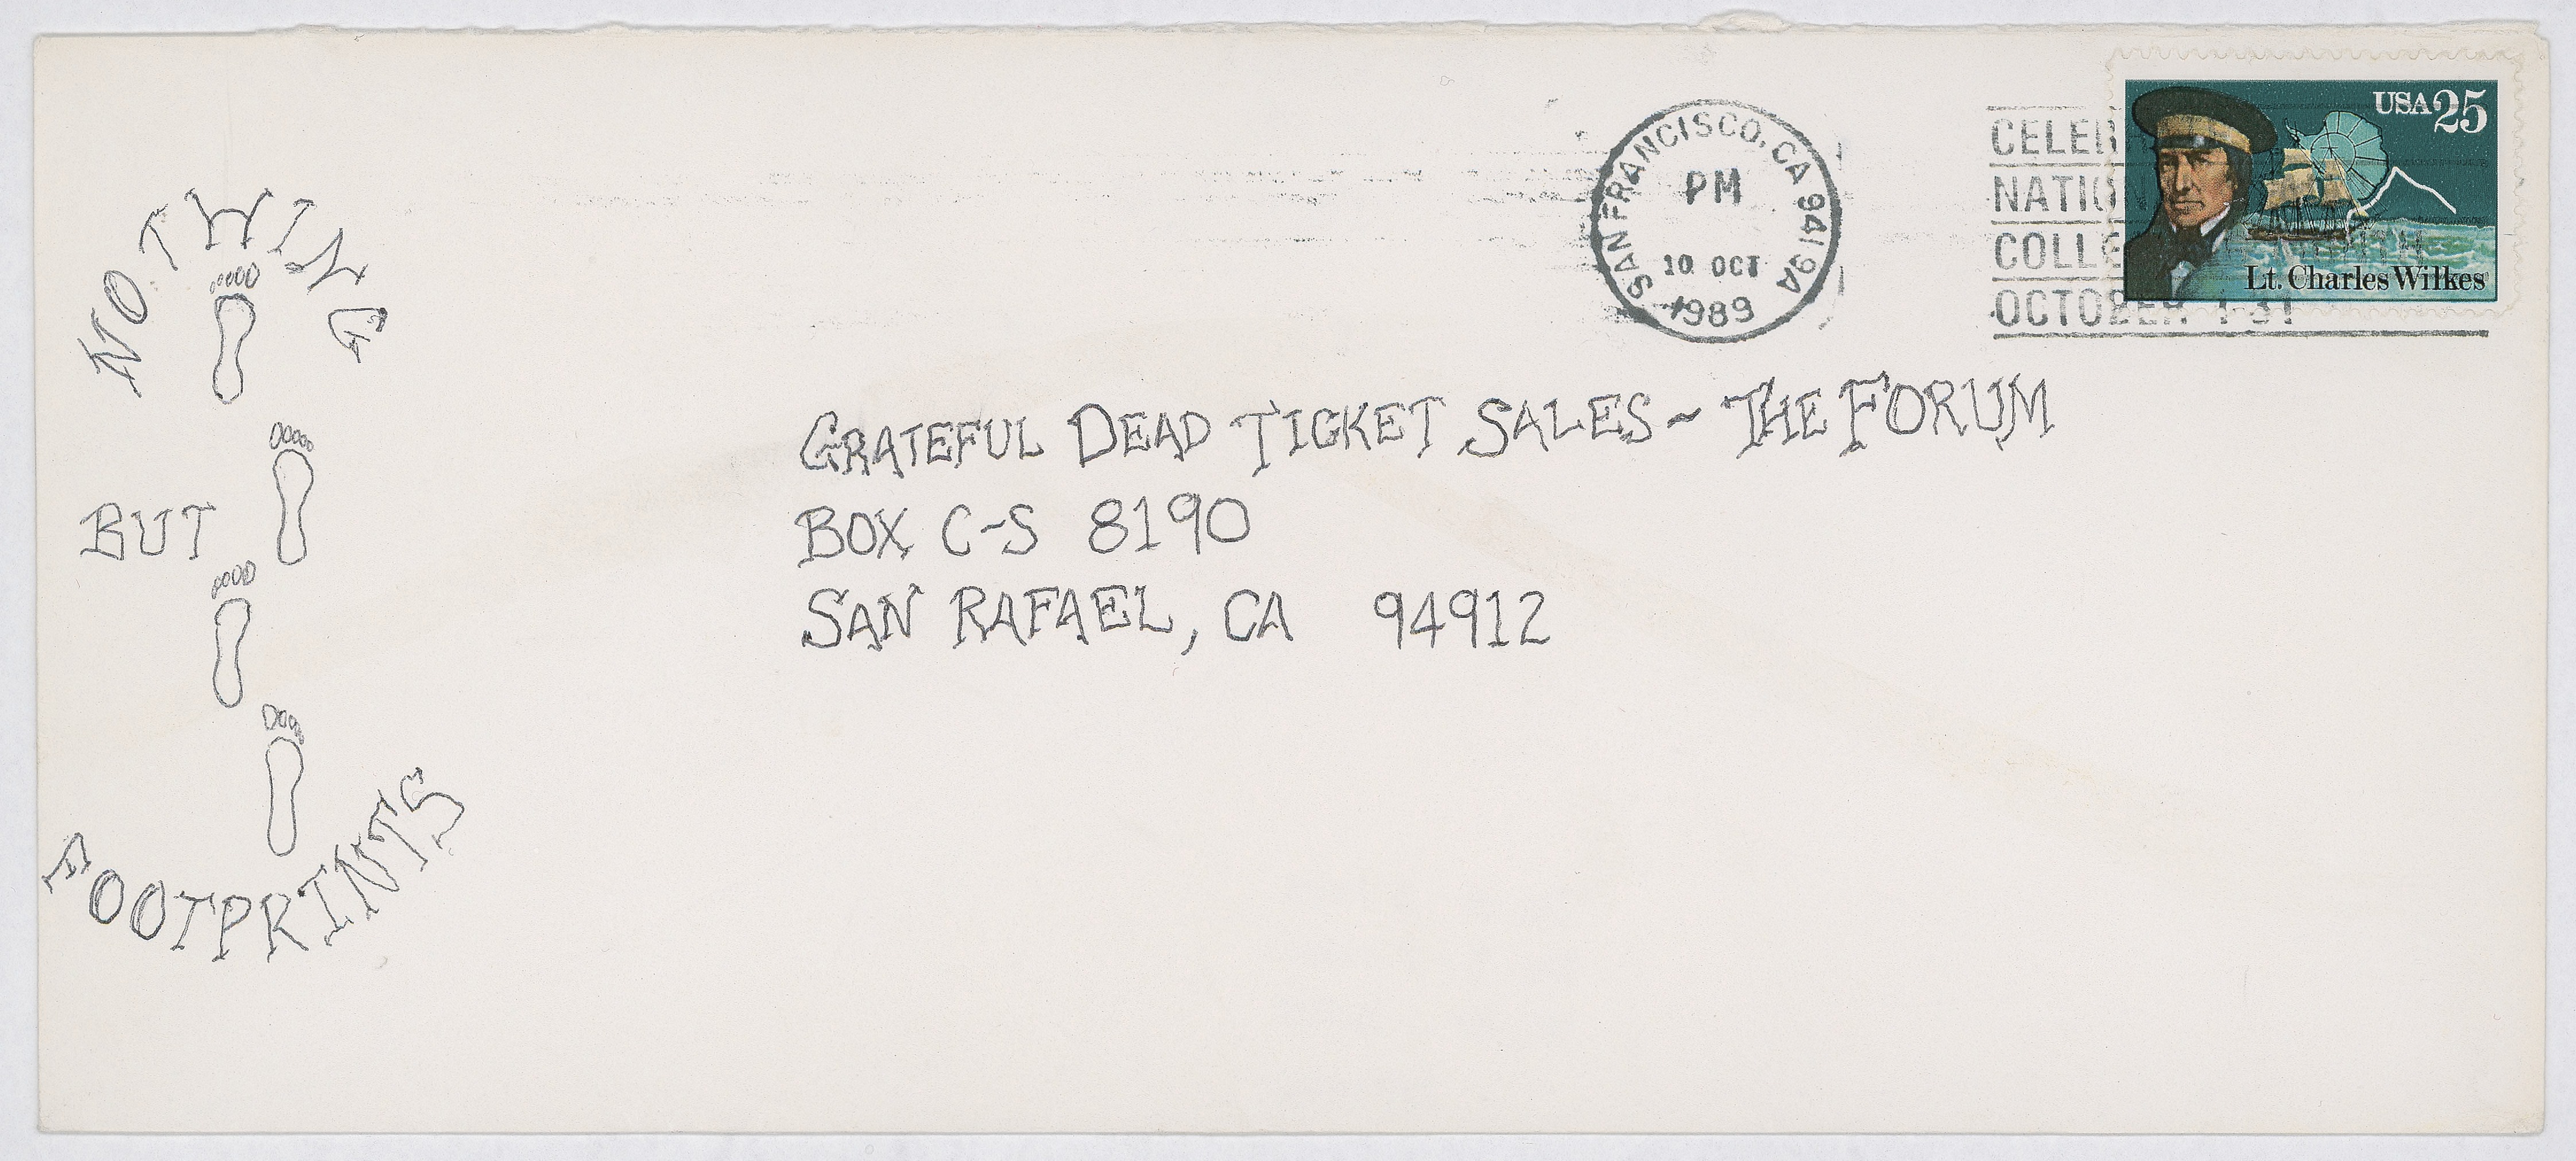 NOTHING
BUT
FOOTPRINTS
SAN FRANCISCO, CA 941 9A
PM
10 OCT
1989
CELEB
NATION
COLLE
OCTOBER 1-31
USA 25
Lt. Charles Wilkes
GRATEFUL DEAD TICKET SALES~ THE FORUM
BOX C-S 8190
SAN RAFAEL, CA 94912